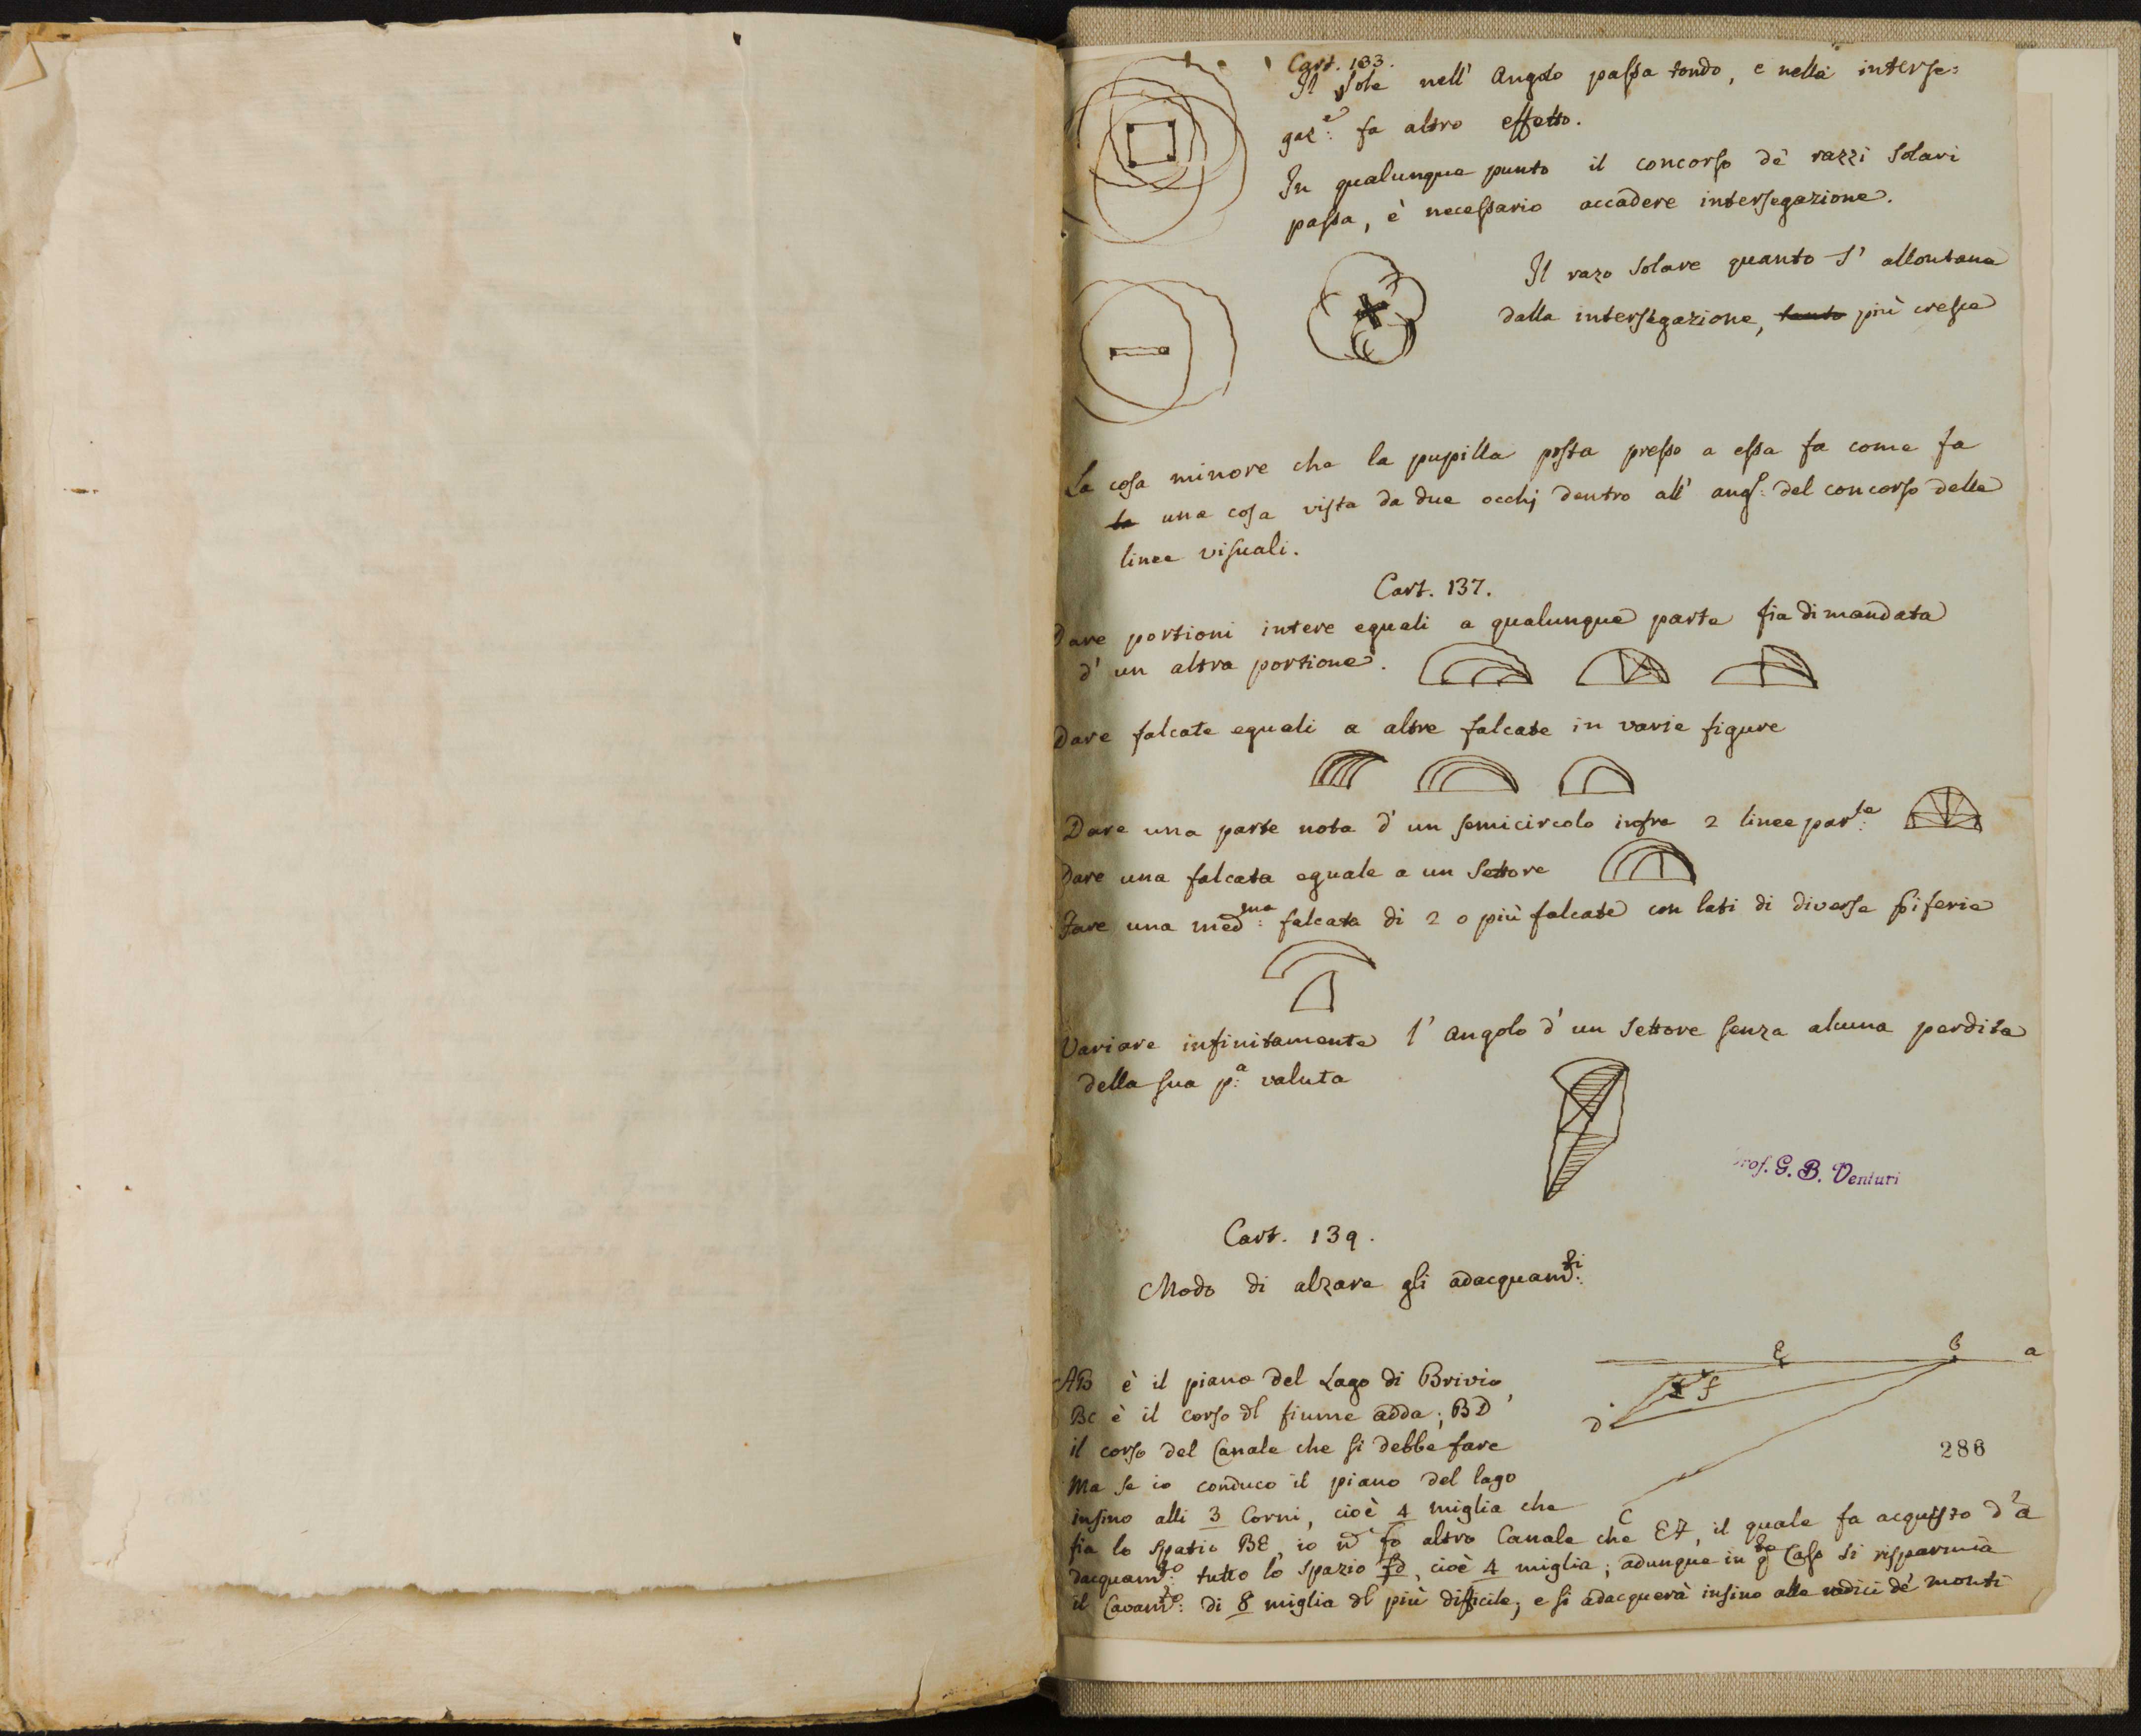 Cart. 133.
Il Sole nell' Angolo passa tondo, e nella interse:
gaz.e fa altro effetto.
In qualunque punto il concorso de' razzi Solari
passa, è necessario accadere intersegazione.
Il razo Solare quanto s' allontana
dalla intersegazione, tanto più cresce
La cosa minore che la pupilla posta presso a essa fa come fa
la una cosa vista da due occhj dentro all' ang: del concorso delle
linee visuali.
Cart. 137.
Dare portioni intere eguali a qualunque parte fia dimandata
d' un altra portione.
Dare falcate eguali a altre falcate in varie figure
Dare una parte nota d' un semicircolo infra 2 linee par:le
Dare una falcata eguale a un Settore
Fare una med:ma falcata di 2 o più falcate con lati di diverse
Variare infinitamente l' Angolo d' un Settore senza alcuna perdita
della sua p:a valuta
Prof. G. B. Venturi
Cart. 139.
Modo di alzare gli adacquam:ti
E B a
f
D
C
AB è il piano del Lago di Brivio,
BC è il corso dl fiume adda; BD
il corso del Canale che si debbe fare
Ma se io conduco il piano del lago
insino alli 3 Corni, cioè 4 miglia che
fia lo spatio BE, io fo altro Canale che EF, il quale fa acquisto d'a
dacquam:to tutto lo spazio fd, cioè 4 miglia; adunque in Caso si risparmia
il Cavam:to di 8 miglia dl più difficile; e si adacquerà insino alle radici de' monti
286